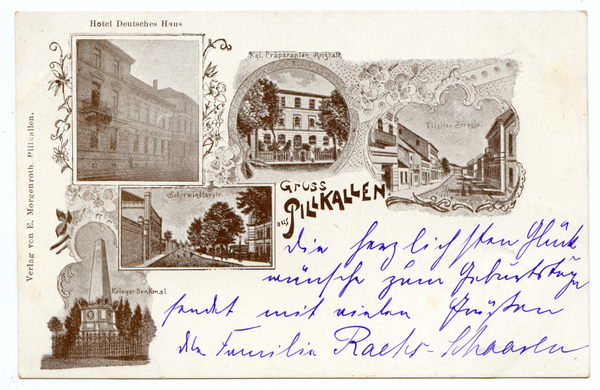 Hotel Deutsches Haus
Kgl. Präparanden Anstalt
Tilsiter Strasse
Schirwindterstr.
Krieger-Denkmal
Verlag von E. Morgenroth, Pillkallen.
Gruss
aus PILLKALLEN
Die herzlichsten Glück
wünsche zum Geburtstage
sendet mit vielen Grüßen
die Familie